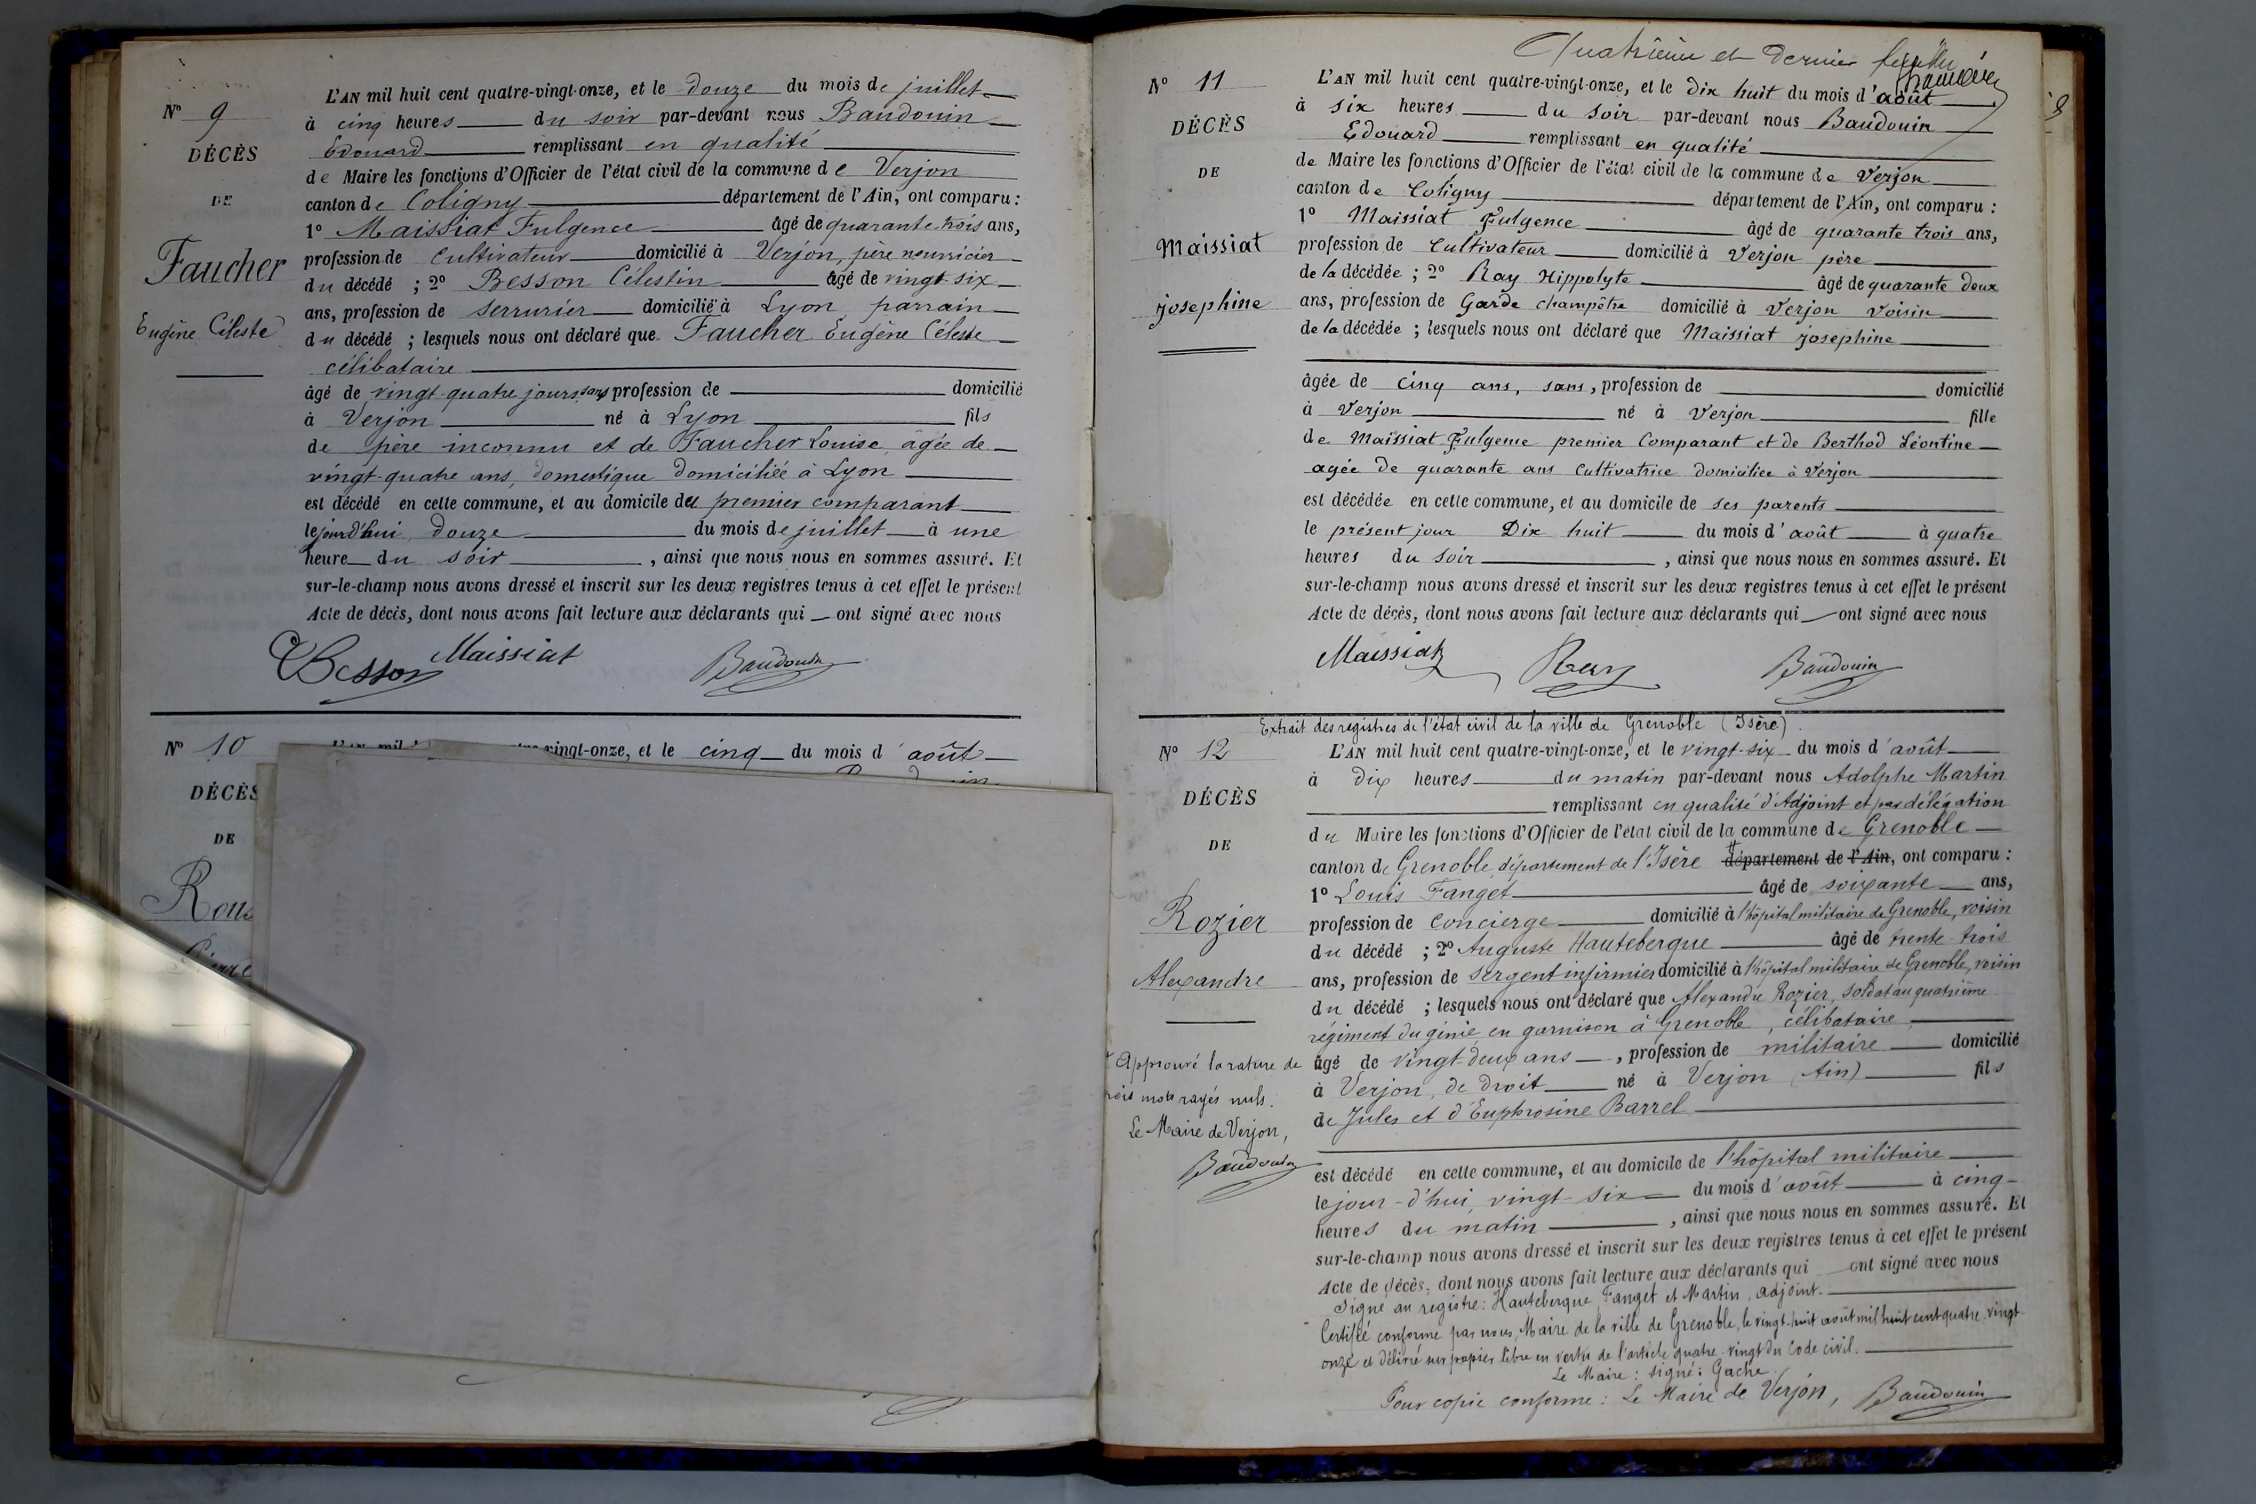 N° 9
DÉCÈS
DE
Faucher
Eugène Céleste
L'AN mil huit cent quatre-vingt-onze, et le douze du mois de juillet
à cinq heures du soir par-devant nous Baudouin
Edouard remplissant en qualité
de Maire les fonctions d'Officier de l'état civil de la commune de Verjon
canton de Coligny département de l'Ain, ont comparu :
1° Maissiat Fulgence âgé de quarante trois ans,
profession de cultivateur domicilié à Verjon, père nourricier
du décédé ; 2° Besson Célestin âgé de vingt-six
ans, profession de serrurier domicilié à Lyon parrain
du décédé ; lesquels nous ont déclaré que Faucher Eugène Céleste
célibataire
âgé de vingt-quatre jours, sans profession de domicilié
à Verjon né à Lyon fils
de père inconnu et de Faucher Louise, âgée de
vingt-quatre ans, domestique domiciliée à Lyon
est décédé en cette commune, et au domicile du premier comparant
le jourd'hui douze du mois de juillet à une
heure du soir , ainsi que nous nous en sommes assuré. Et
sur-le-champ nous avons dressé et inscrit sur les deux registres tenus à cet effet le présent
Acte de décès, dont nous avons fait lecture aux déclarants qui ont signé avec nous
Besson Maissiat Baudouin
N° 10
DÉCÈS
DE
L'AN mil vingt-onze, et le cinq du mois d'août
Quatrième et dernier feuillet
N° 11
DÉCÈS
DE
Maissiat
josephine
L'AN mil huit cent quatre-vingt-onze, et le Dix huit du mois d'août
à six heures du soir par-devant nous Baudouin
Edouard remplissant en qualité
de Maire les fonctions d'Officier de l'état civil de la commune de Verjon
canton de Coligny département de l'Ain, ont comparu :
1° Maissiat Fulgence âgé de quarante trois ans,
profession de Cultivateur domicilié à Verjon père
de la décédée ; 2° Ray Hippolyte âgé de quarante deux
ans, profession de Garde champêtre domicilié à Verjon voisin
de la décédée ; lesquels nous ont déclaré que Maissiat josephine
âgée de cinq ans, sans, profession de domicilié
à Verjon né à Verjon fille
de Maissiat Fulgence premier Comparant et de Berthod Léontine
agée de quarante ans Cultivatrice domiciliée à Verjon
est décédée en cette commune, et au domicile de ses parents
le présent jour Dix huit du mois d'août à quatre
heures du soir , ainsi que nous nous en sommes assuré. Et
sur-le-champ nous avons dressé et inscrit sur les deux registres tenus à cet effet le présent
Acte de décès, dont nous avons fait lecture aux déclarants qui ont signé avec nous
Maissiat Ray Baudouin
Extrait des registres de l'état civil de la ville de Grenoble (Isère).
N° 12
DÉCÈS
DE
Rozier
Alexandre
L'AN mil huit cent quatre-vingt-onze, et le vingt-six du mois d'août
à dix heures du matin par-devant nous Adolphe Martin
remplissant en qualité d'Adjoint et par délégation
du Maire les fonctions d'Officier de l'état civil de la commune de Grenoble
canton de Grenoble, département de l'Isère département de l'Ain, ont comparu :
1° Louis Fanget âgé de soixante ans,
profession de concierge domicilié à l'hôpital militaire de Grenoble, voisin
du décédé ; 2° Auguste Hauteberque âgé de trente-trois
ans, profession de sergent infirmier domicilié à l'hôpital militaire de Grenoble, voisin
du décédé ; lesquels nous ont déclaré que Alexandre Rozier, soldat au quatrième
régiment du génie en garnison à Grenoble, célibataire,
âgé de vingt-deux ans , profession de militaire domicilié
à Verjon, de droit né à Verjon (Ain) fils
de Jules et d'Euphrosine Barrel
est décédé en cette commune, et au domicile de l'hôpital militaire
le jour-d'hui, vingt-six du mois d'août à cinq
heures du matin , ainsi que nous nous en sommes assuré. Et
sur-le-champ nous avons dressé et inscrit sur les deux registres tenus à cet effet le présent
Acte de décès, dont nous avons fait lecture aux déclarants qui ont signé avec nous
Signé au registre : Hauteberque, Fanget et Martin, adjoint.
Certifié conforme par nous, Maire de la ville de Grenoble, le vingt-huit août mil huit cent quatre-vingt-
onze et délivré sur papier libre en vertu de l'article quatre-vingt du Code civil.
Le Maire : signé : Gaché.
Pour copie conforme : Le Maire de Verjon, Baudouin
Approuvé la rature de
trois mots rayés nuls.
Le Maire de Verjon,
Baudouin